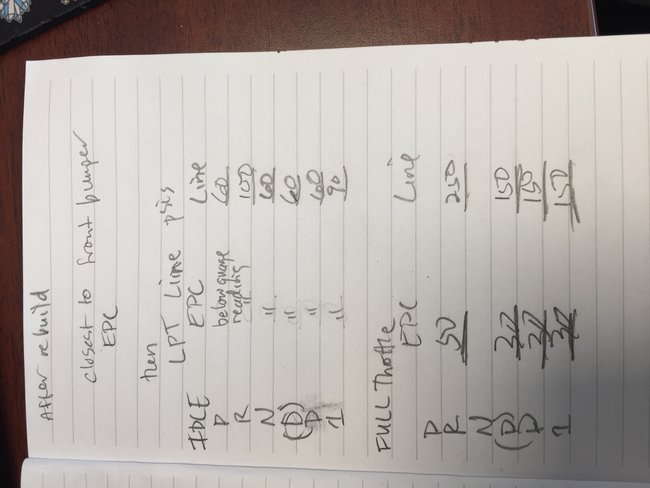 After rebuild
closest to front bumper
EPC
then
LPT Line psis
IDLE EPC Line
P below guage reading 60
R " 100
N " 60
(D) " 60
D " 60
1 " 90
FULL Throttle
EPC Line
P
R 50 250
N
(D) 30 150
D 30 150
1 30 150